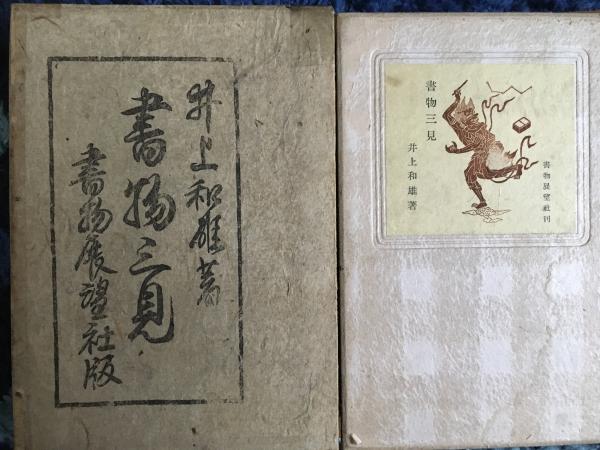 井上和雄著
書物三見
書物展望社版
書物三見
井上和雄著
書物展望社刊